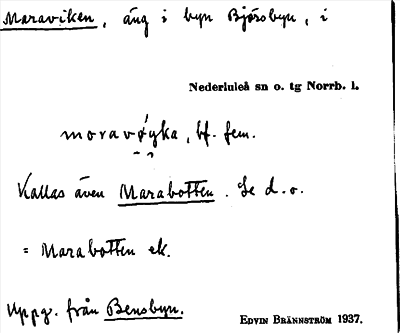 Maraviken, äng i byn Björsbyn, i
Nederluleå sn o. tg Norrb. l.
moravø̀yka, bf. fem.
Kallas även Marabotten. Se d.o.
= Marabotten ek.
Uppg. från Bensbyn.
EDVIN BRÄNNSTRÖM 1937.